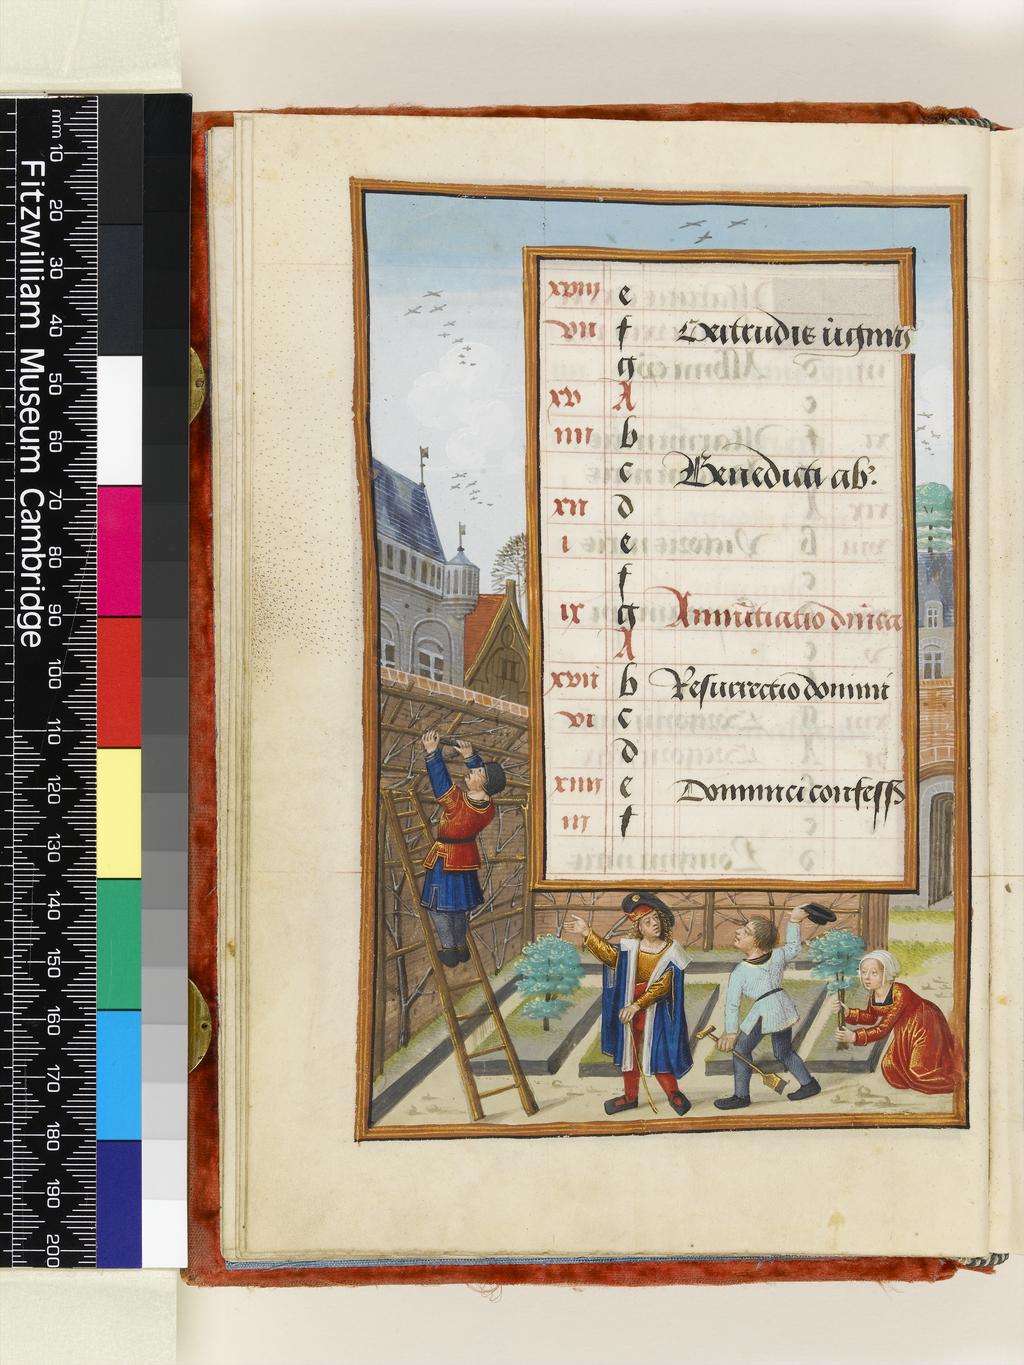 Fitzwilliam Museum Cambridge
mm 10 20 30 40 50 60 70 80 90 100 110 120 130 140 150 160 170 180 190 200
xviii e
vii f Gertrudis uirginis
g
xv A
iiii b
c Benedicti ab.
xii d
i e
f
ix g Annūtiatio dn̄ica
A
xvii b Resurrectio domini
vi c
d
xiiii e
iii f